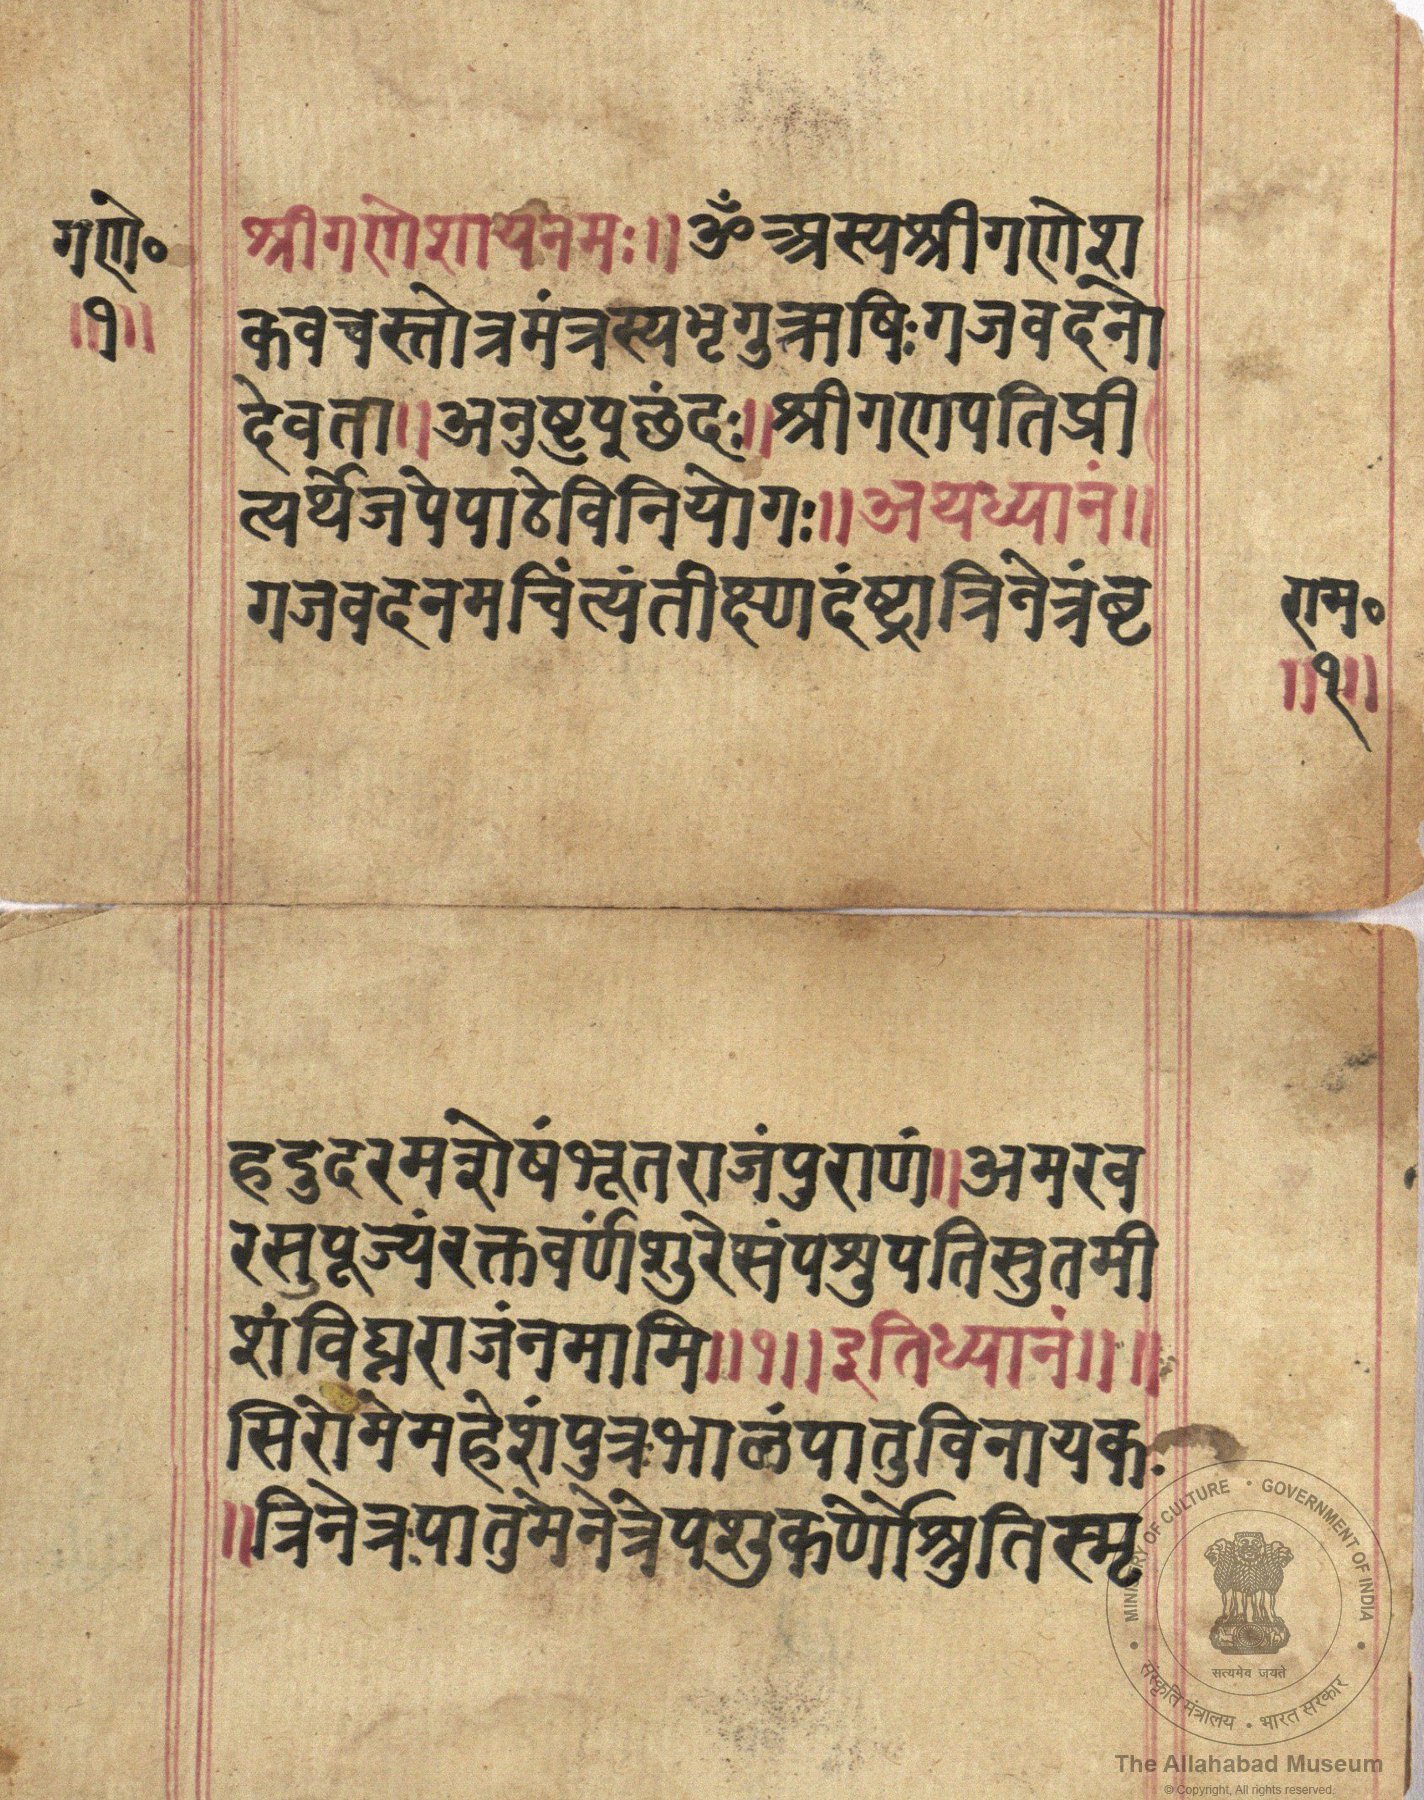 गणे॰
॥१॥
श्रीगणेशायनमः॥ॐअस्यश्रीगणेश
कवचस्तोत्रमंत्रस्यभृगुऋषिःगजवदनो
देवता॥अनुष्टपूछंदः॥श्रीगणपतिप्री
त्यर्थेजपेपाठेविनियोगः॥अथध्यानं॥
गजवदनमचिंत्यंतीक्ष्णदंष्ट्रात्रिनेत्रंबृ
राम॰
॥१॥
हदुदरमशेषंभूतराजंपुराणं॥अमरव
रसुपूज्यंरक्तवर्णंशुरेसंपशुपतिसुतमी
शंविघ्नराजंनमामि॥१॥इतिध्यानं॥॥
सिरोमेमहेशंपुत्रःभालंपातुविनायकः
॥त्रिनेत्रःपातुमेनेत्रेपशुकर्णोश्रुतिस्मृ
MINISTRY OF CULTURE • GOVERNMENT OF INDIA
सत्यमेव जयते
संस्कृति मंत्रालय • भारत सरकार
The Allahabad Museum
© Copyright, All rights reserved.